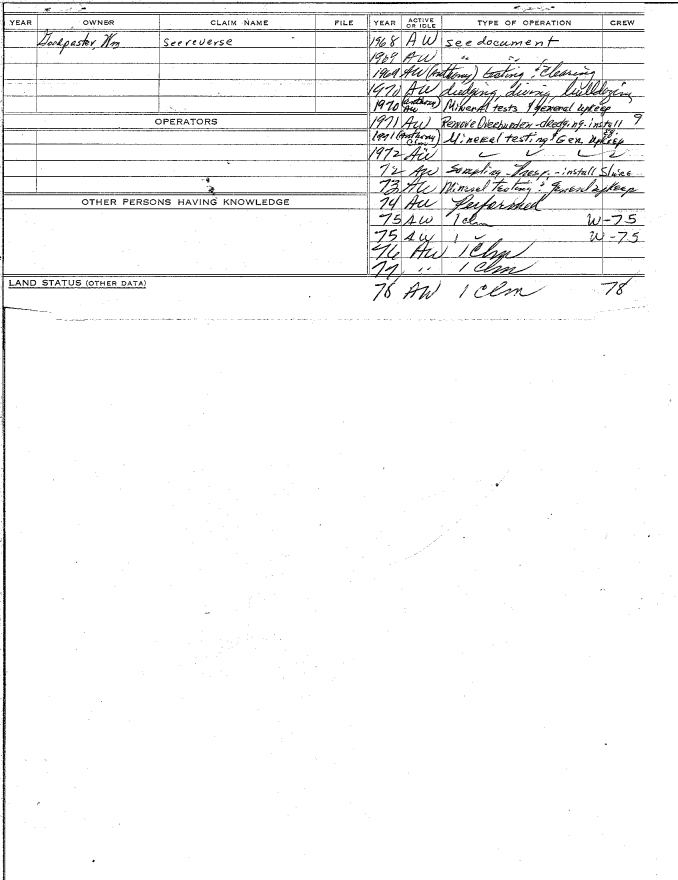 YEAR OWNER CLAIM NAME FILE YEAR ACTIVE OR IDLE TYPE OF OPERATION CREW
Goodpaster, Wm See reverse 1968 AW see document
1969 AW " "
1969 AW (Anthony) testing & Clearing
1970 AW dredging, diving, bulldozing
1970 (Anthony) AW Mineral tests & general upkeep
OPERATORS 1971 AW Remove Overburden - dredging - install 9
1971 (Anthony Clm) Mineral testing & Gen. upkeep
1972 AW
72 AW Sampling - - install Sluice
73 AW Mineral Testing & General upkeep
OTHER PERSONS HAVING KNOWLEDGE 74 AW Performed
75 AW 1 clm W-75
75 AW 1 " W-75
76 AW 1 Clm
77 " 1 Clm
LAND STATUS (OTHER DATA) 78 AW 1 Clm 78